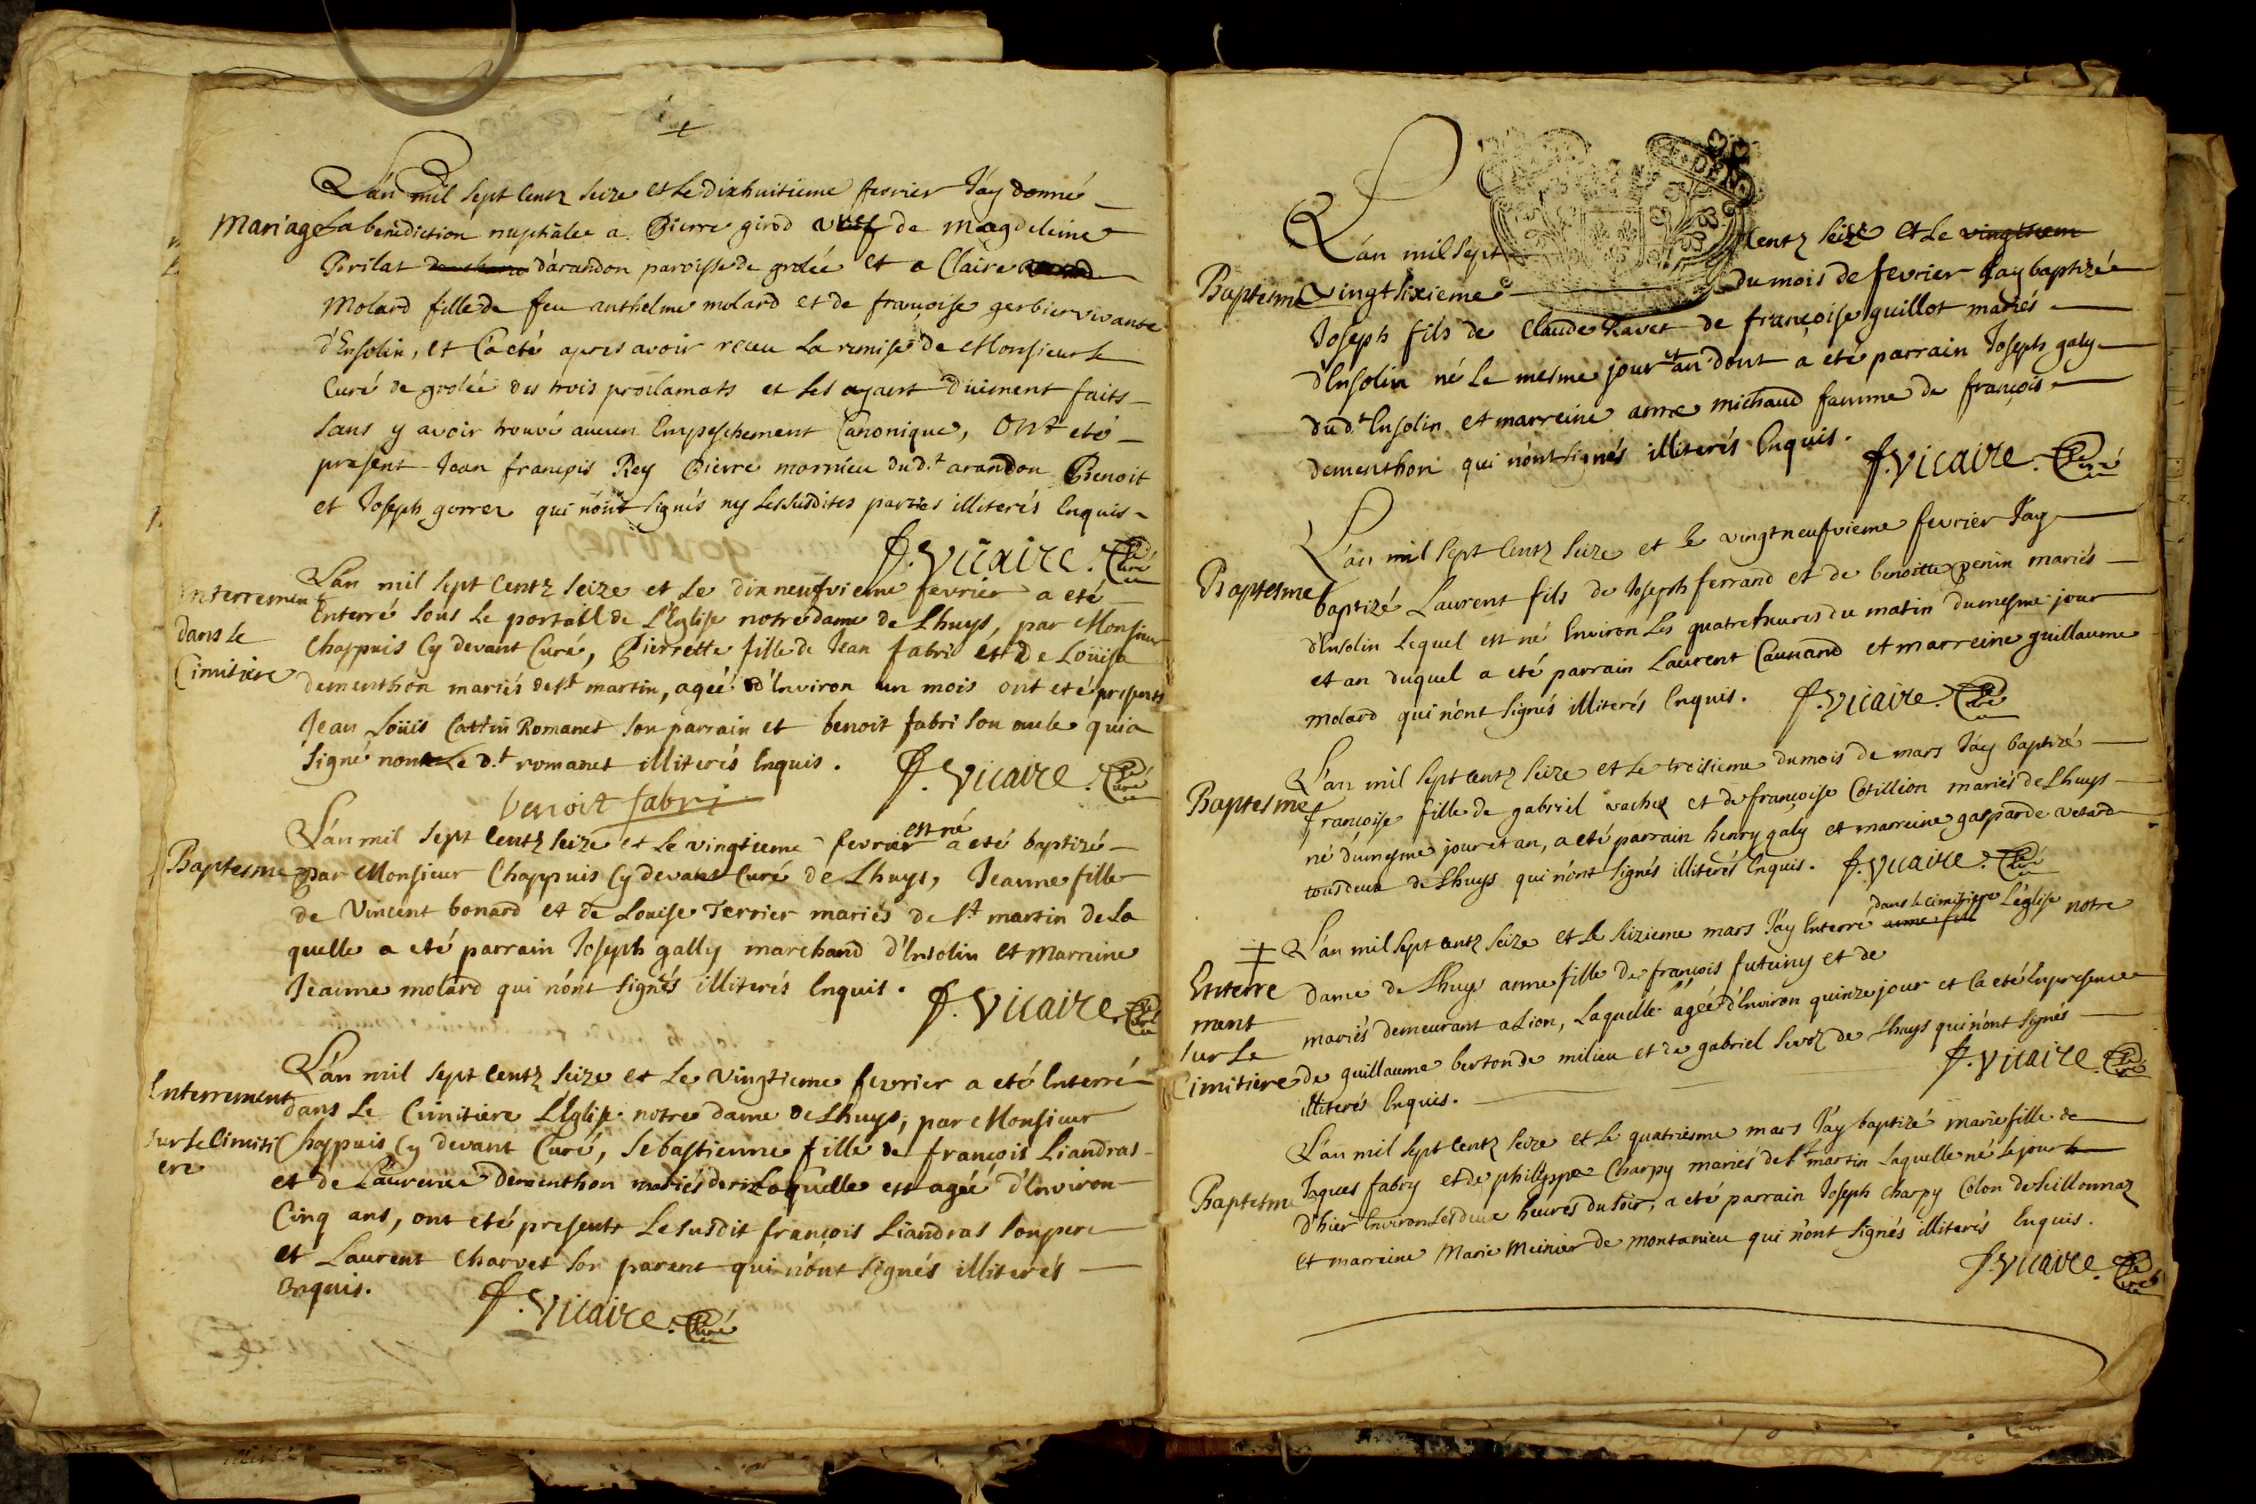 L'an mil sept centz seize et le dixhuitieme fevrier J'ay donné
Mariage
La benediction nuptiale a Pierre girod vuef de magdeleine
Perilat d'arandon paroisse de grolée et a Claire
Molard fille de feu anthelme molard et de françoise gerbier vivante
d'Ensolin, et C'a eté apres avoir receu La remise de Monsieur le
Curé de grolée des trois proclamats et les ayant duement faits
sans y avoir trouvé aucun Empeschement Canonique, Ont eté
present Jean françois Rey Pierre mornieu dud.t arandon Benoit
et Joseph gorrer qui n'ont signés ny les susdites parties illiterés Enquis
f. Vicaire. Curé
Interrement
dans le
Cimitiere
L'an mil sept centz seize et le dixneufvieme fevrier a eté
Enterré sous le portail de L'Eglise notre dame de Lhuys, par Monsieur
Chappuis Cy devant Curé, Pierrette fille de Jean fabri et de Loüisa
dementhon mariés de st martin, ageé d'Environ un mois ont eté presents
Jean Loüis Cattin Romanet son parrain et benoit fabri son oncle qui a
signé non Le d.t romanet illiterés Enquis. f. Vicaire. Curé
benoit fabri
Baptesme
L'an mil sept centz seize et le vingtieme fevrier est né a eté baptizé
par Monsieur Chappuis Cy devant Curé de Lhuys, Jeanne fille
de Vincent bonard et de Louise Terrier mariés de st martin de La
quelle a eté parrain Joseph gally marchand d'Ensolin et Marreine
Jeanne molard qui n'ont signés illiterés Enquis. f. Vicaire. Curé
Enterrement
sur le Cimiti
ere
L'an mil sept centz seize et Le vingtieme fevrier a eté Enterré
dans Le Cimitiere L'Eglise notre dame de Lhuys, par Monsieur
Chappuis Cy devant Curé, Sebastienne fille de françois Liandras
et de Laurence dementhon mariés Laquelle est ageé d'Environ
Cinq ans, ont eté presents Le susdit françois Liandras son pere
et Laurent Charvet son parent qui n'ont signés illiterés
Enquis. f. Vicaire. Curé
Baptesme
L'an mil sept centz seize et le vingtiem
vingtsixieme du mois de fevrier J'ay baptizé
Joseph fils de Claude Ravet de françoise guillot mariés
d'Ensolin né Le mesme jour et an dont a eté parrain Joseph galy
dud.t Ensolin et marreine anne michaud famme de françois
dementhon qui n'ont signés illiterés Enquis. f. Vicaire. Curé
Baptesme
L'an mil sept centz seize et le vingtneufvieme fevrier J'ay
baptizé Laurent fils de Joseph ferrand et de benoitte penin mariés
d'Ensolin Lequel est né Environ Les quatre heures du matin du mesme jour
et an duquel a eté parrain Laurent Caunand et marreine guillaume
molard qui n'ont signés illiterés Enquis. f. Vicaire. Curé
Baptesme
L'an mil sept centz seize et le troisieme du mois de mars J'ay baptizé
françoise fille de gabriel vachez et de françoise Cotillion mariés de Lhuys
né du mesme jour et an, a eté parrain henry galy et marreine gasparde vetard
tous deux de Lhuys qui n'ont signés illiterés Enquis. f. Vicaire. Curé
Enterre
ment
sur Le
Cimitiere
L'an mil sept centz seize et Le seizieme mars J'ay Enterré dans le cimitiere L'église notre
dame de Lhuys anne fille de françois futeiny et de
mariés demeurant a Lion, Laquelle ageé d'Environ quinze jour et C'a eté En presence
de guillaume berton de milieu et de gabriel Servoz de Lhuys qui n'ont signés
illiterés Enquis. f. Vicaire. Curé
Baptesme
L'an mil sept centz seize et Le quatriesme mars J'ay baptizé marie fille de
Jaques fabry et de philippe Charpy mariés de st martin Laquelle né Le jour
d'hier Environ Les deux heures du soir, a eté parrain Joseph Charpy Colon de seillonnaz
et marreine Marie Meinier de montanieu qui n'ont signés illiterés Enquis.
f. Vicaire. Curé